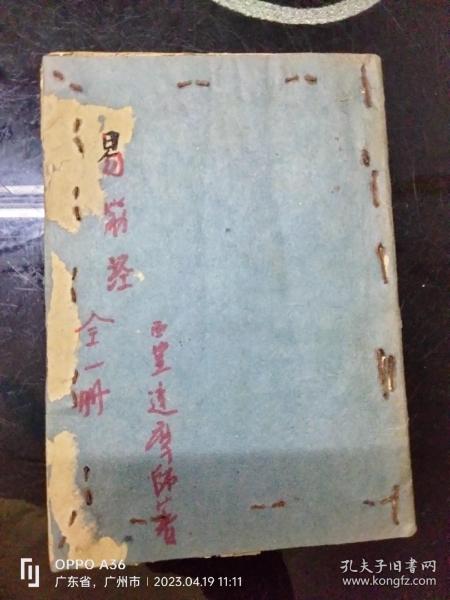 易筋经
全一册
西竺达摩师著
OPPO A36
广东省，广州市 | 2023.04.19 11:11
孔夫子旧书网
www.kongfz.com